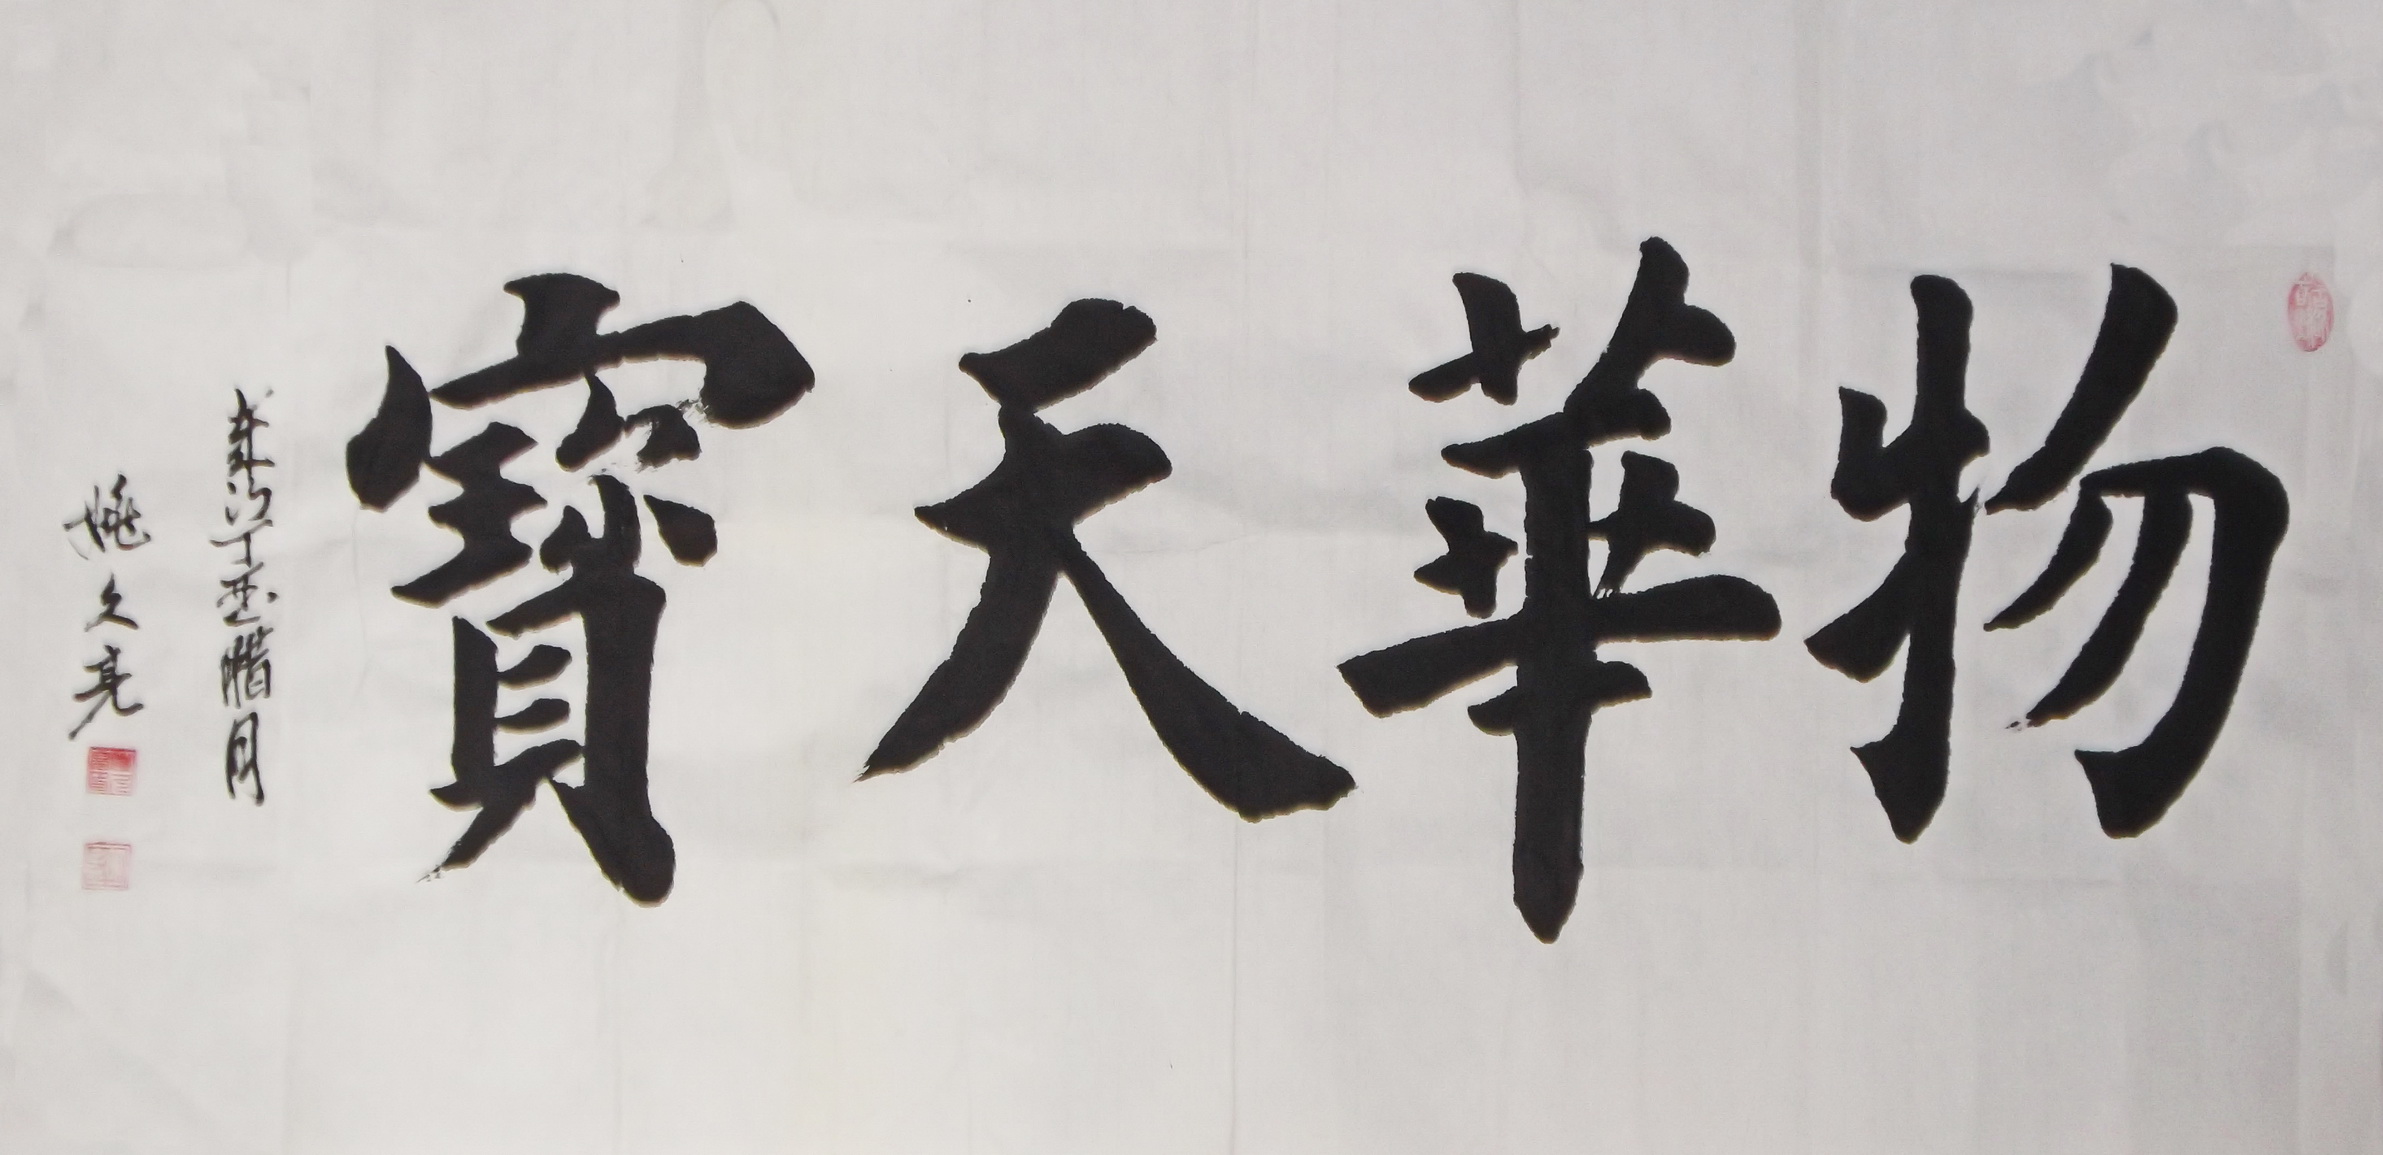 物華天寶
歲次丁酉臘月
姚文亮